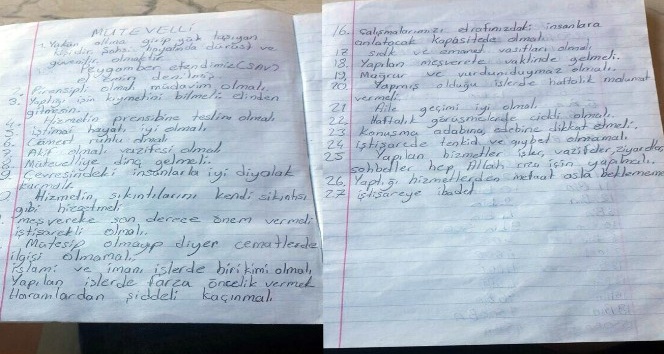 MUTEVELLİ
1. Yükün altına girip yük taşıyan
kişidir. Şahsi hayatında dürüst ve
güvenilir olmaktır.
Peygamber efendimiz (SAV)
el Emin denilmiş.
2. Pirensipli olmalı, müdavim olmalı.
3. Yaptığı işin kıymetini bilmeli elinden
gitmesin.
4. Hizmetin prensibine teslim olmalı
5. içtimai hayatı iyi olmalı.
6. Cömert ruhlu olmalı
7. olmalı vazifesi olmalı
8. Mütevelliye dinç gelmeli.
9. Çevresindeki insanlarla iyi diyalok
kurmalı.
Hizmetin, sıkıntılarını kendi sıkıntısı
gibi hissetmeli
meşverete son derece önem vermeli
istişarekli olmalı.
Mutesip olmayıp diyer cematlerle
ilgisi olmamalı.
islami ve imanı işlerde birikimi olmalı,
Yapılan işlerde farza öncelik vermek
Haramlardan şiddeli kaçınmalı
16. Çalışmalarımızı etrafınızdaki insanlara
anlatacak kapasitede olmalı.
17. sıdk ve emanet vasıfları olmalı
18. Yapılan meşverete vaktinde gelmeli.
19. Mağrur ve vurdumduymaz olmalı.
20. Yapmış olduğu işlerde haftalık malumat
vermeli.
21 Aile geçimi iyi olmalı.
22. Haftalık görüşmelerde ciddi olmalı.
23. Konuşma adabına, edebine dikkat etmeli.
24 istişarede tenkid ve gıybet olmamalı
25 Yapılan hizmetler işler, vazifeler, ziyaretler,
sohbetler hep Allah rızası için yapılmalı.
26. Yaptığı hizmetlerden mefaat asla beklememe
27. istişareye ibadet